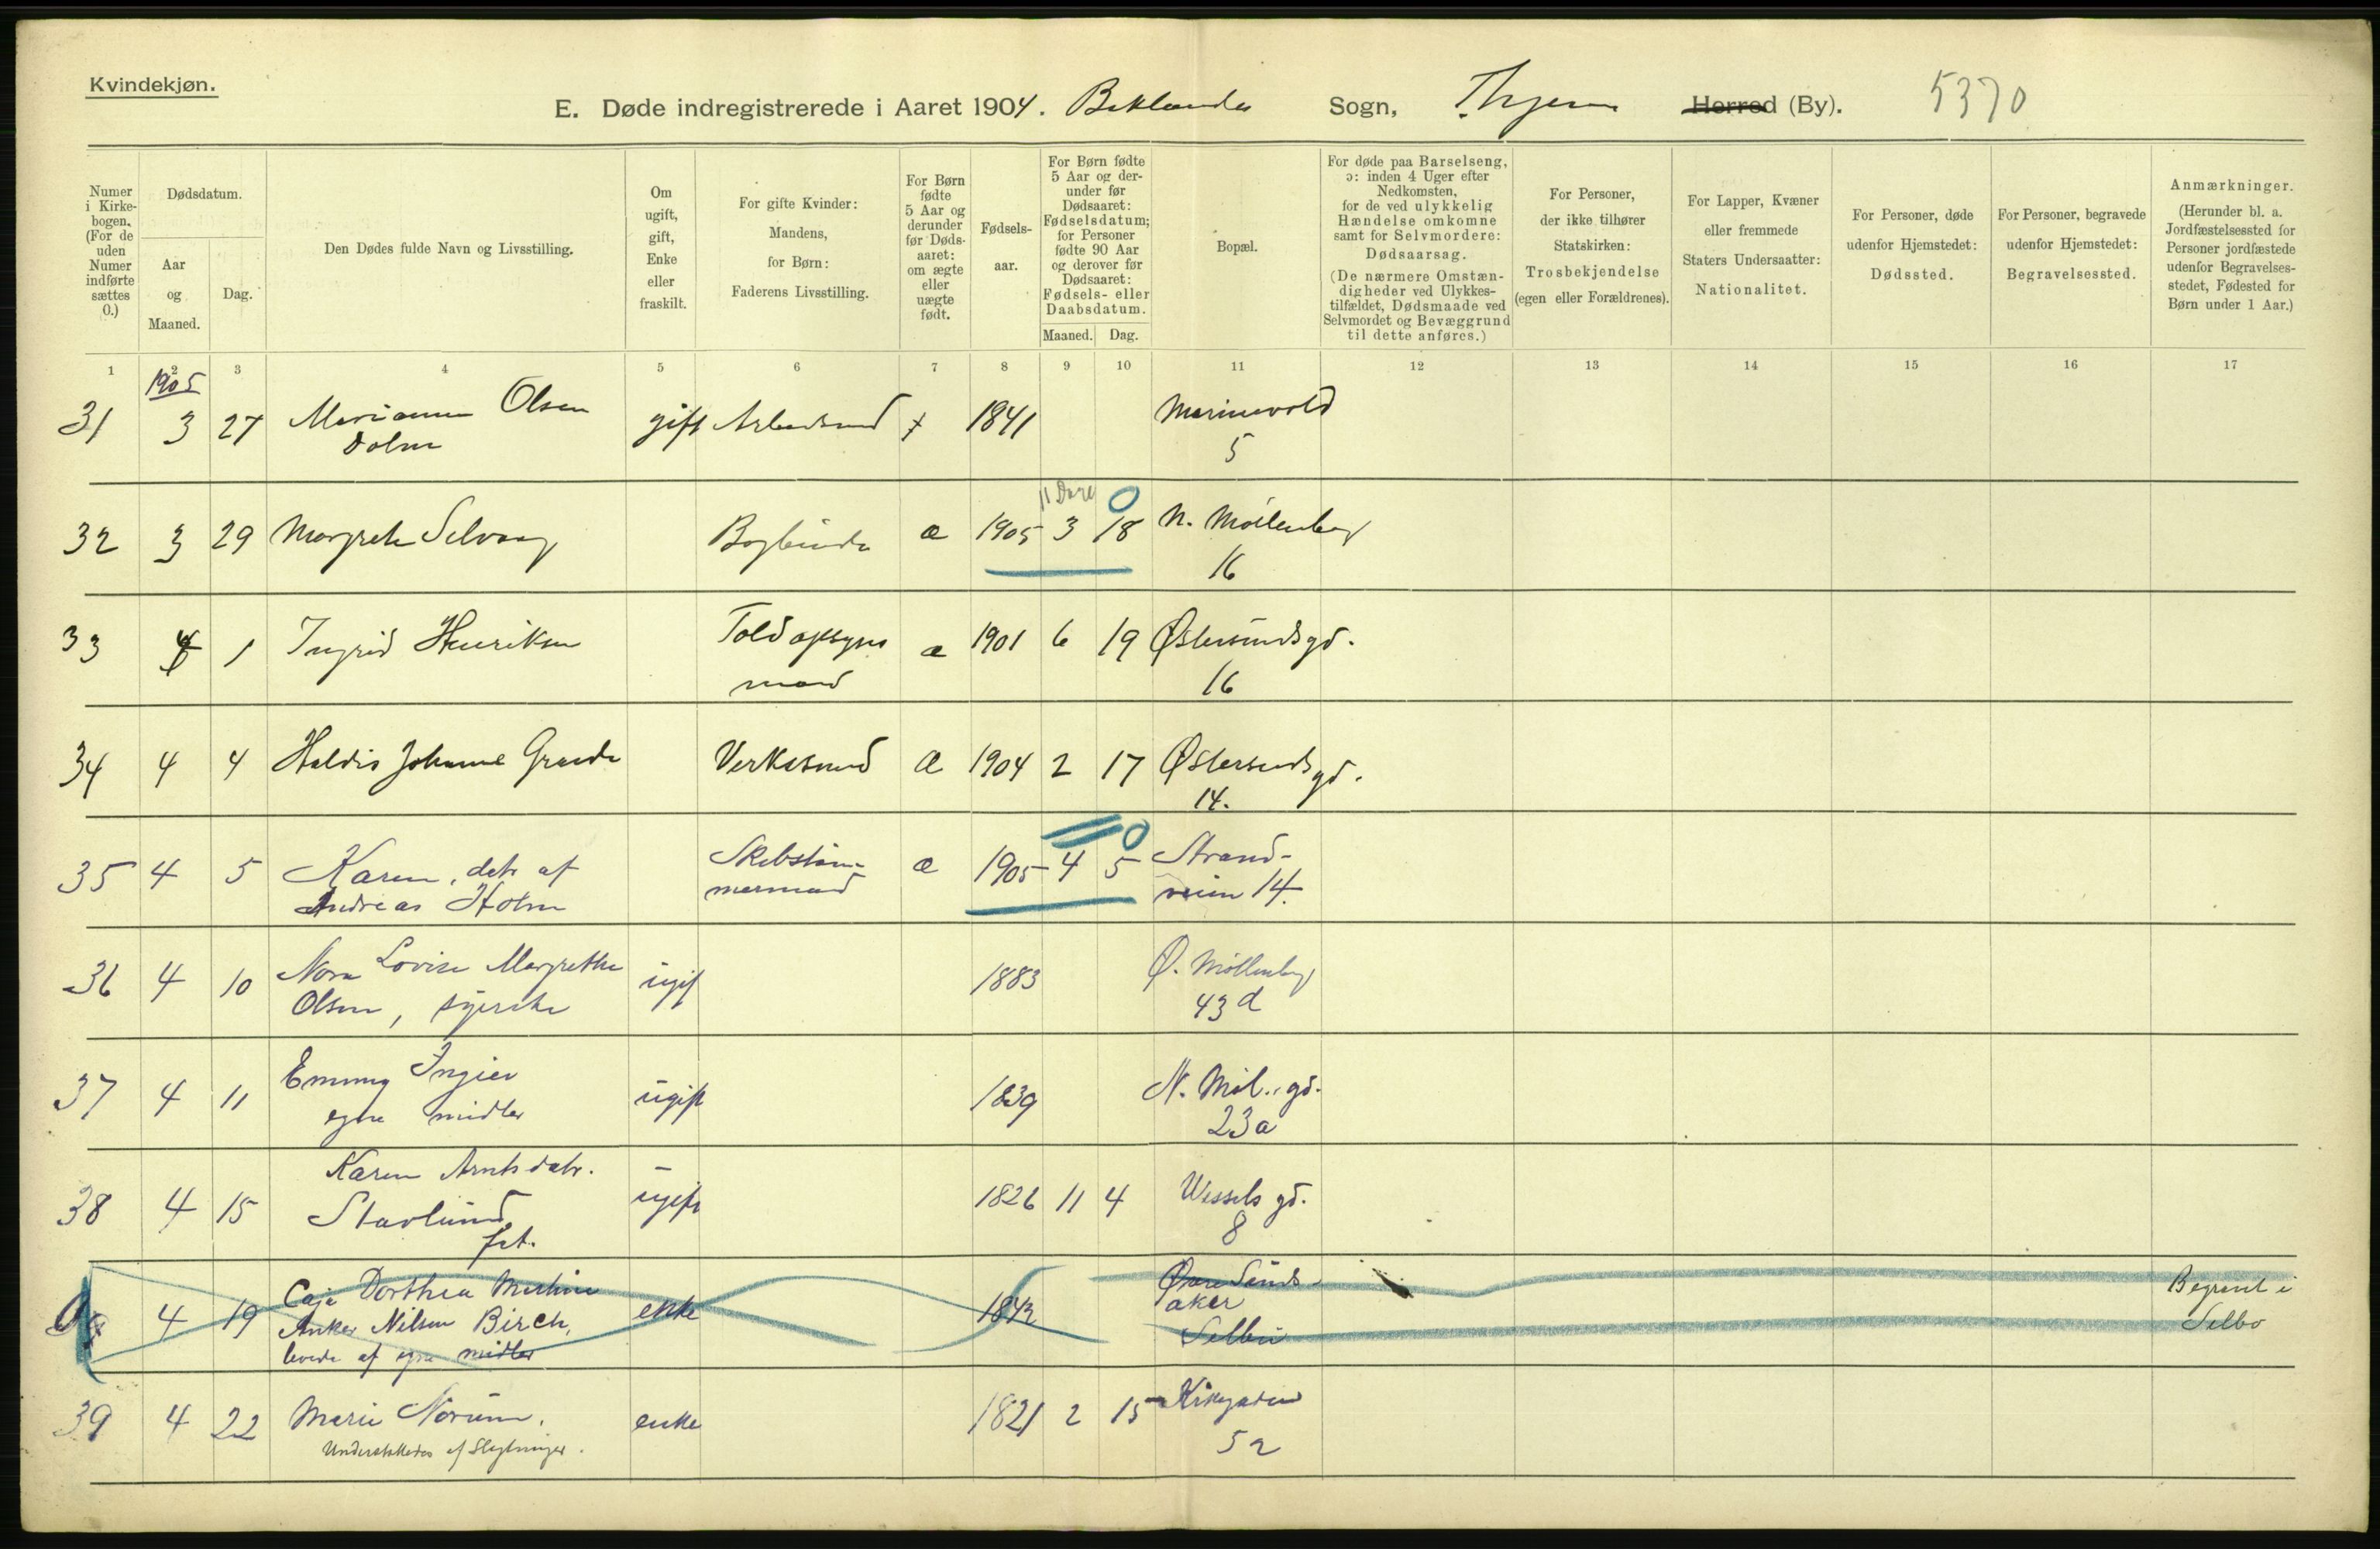 Kvindekjøn.
E. Døde indregistrerede i Aaret 1904. Baklandes Sogn, Thjem Herred (By). 5370
Numer i Kirkebogen. (For de uden Numer indførte sættes 0.)
Dødsdatum.
Aar og Maaned.
Dag.
Den Dødes fulde Navn og Livsstilling.
Om ugift, gift, Enke eller fraskilt.
For gifte Kvinder: Mandens, for Børn: Faderens Livsstilling.
For Børn fødte 5 Aar og derunder før Dødsaaret: om ægte eller uægte født.
Fødselsaar.
For Børn fødte 5 Aar og derunder før Dødsaaret: Fødselsdatum; for Personer fødte 90 Aar og derover før Dødsaaret: Fødsels- eller Daabsdatum.
Maaned. Dag.
Bopæl.
For døde paa Barselseng, ɔ: inden 4 Uger efter Nedkomsten, for de ved ulykkelig Hændelse omkomne samt for Selvmordere: Dødsaarsag.
(De nærmere Omstændigheder ved Ulykkestilfældet, Dødsmaade ved Selvmordet og Bevæggrund til dette anføres.)
For Personer, der ikke tilhører Statskirken: Trosbekjendelse (egen eller Forældrenes).
For Lapper, Kvæner eller fremmede Staters Undersaatter: Nationalitet.
For Personer, døde udenfor Hjemstedet: Dødssted.
For Personer, begravede udenfor Hjemstedet: Begravelsessted.
Anmærkninger.
(Herunder bl. a. Jordfæstelsessted for Personer jordfæstede udenfor Begravelsesstedet, Fødested for Børn under 1 Aar.)
1 2 3 4 5 6 7 8 9 10 11 12 13 14 15 16 17
1905
31 3 27 Marianne Olsen gift Arbeidsmd 1841 Marinevold
Dolm 5
11 Dage 0
32 3 29 Margrete Selvaag Bogbinder æ 1905 3 18 N. Möllenberg
16
33 4 1 Ingrid Henriksen Toldopsyns æ 1901 6 19 Østersundsgd.
mand 16
34 4 4 Haldis Johanne Grande Verksmd æ 1904 2 17 Østersundsgd.
14.
0
35 4 5 Karen, datr af Skibstöm- æ 1905 4 5 Strand-
Andreas Holm mermand veien 14.
36 4 10 Nora Lovise Margrethe ugift 1883 Ø. Möllenberg
Olsen, syerske 43 d
37 4 11 Emmy Ingier ugift 1839 N. Möl. gd.
egne midler 23a
38 4 15 Karen Arntsdatr. ugift 1826 11 4 Wessels gd.
Stavlund 8
fat.
4 19 Caja Dorthea Martine enke 1843 Øvre Sunds- Begravet i
Anker Nilsen Birch, aker Selbo
levede af egne midler Selbu
39 4 22 Marie Norum. enke 1821 2 15 Kirkegaden
Understøttedes af Slegtninger. 52